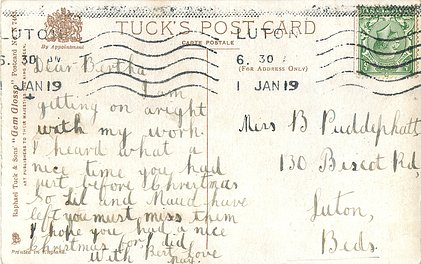 LUTON
6. 30 PM
1 JAN 19
By Appointment
TUCK'S POST CARD
CARTE POSTALE
(FOR ADDRESS ONLY)
LUTON
6. 30
1 JAN 19
Raphael Tuck & Sons' "Gem Glosso" Postcard No.
ART PUBLISHERS TO THEIR MAJESTIES
Printed in England.
Dear Bertha
I am
getting on aright
with my work.
I heard what a
nice time you had
just before Christmas
So Lil and Maud have
left you must miss them
I hope you had a nice
christmas for I did
With Best love
May.
Miss B Puddephatt,
130 Biscot Rd,
Luton,
Beds.